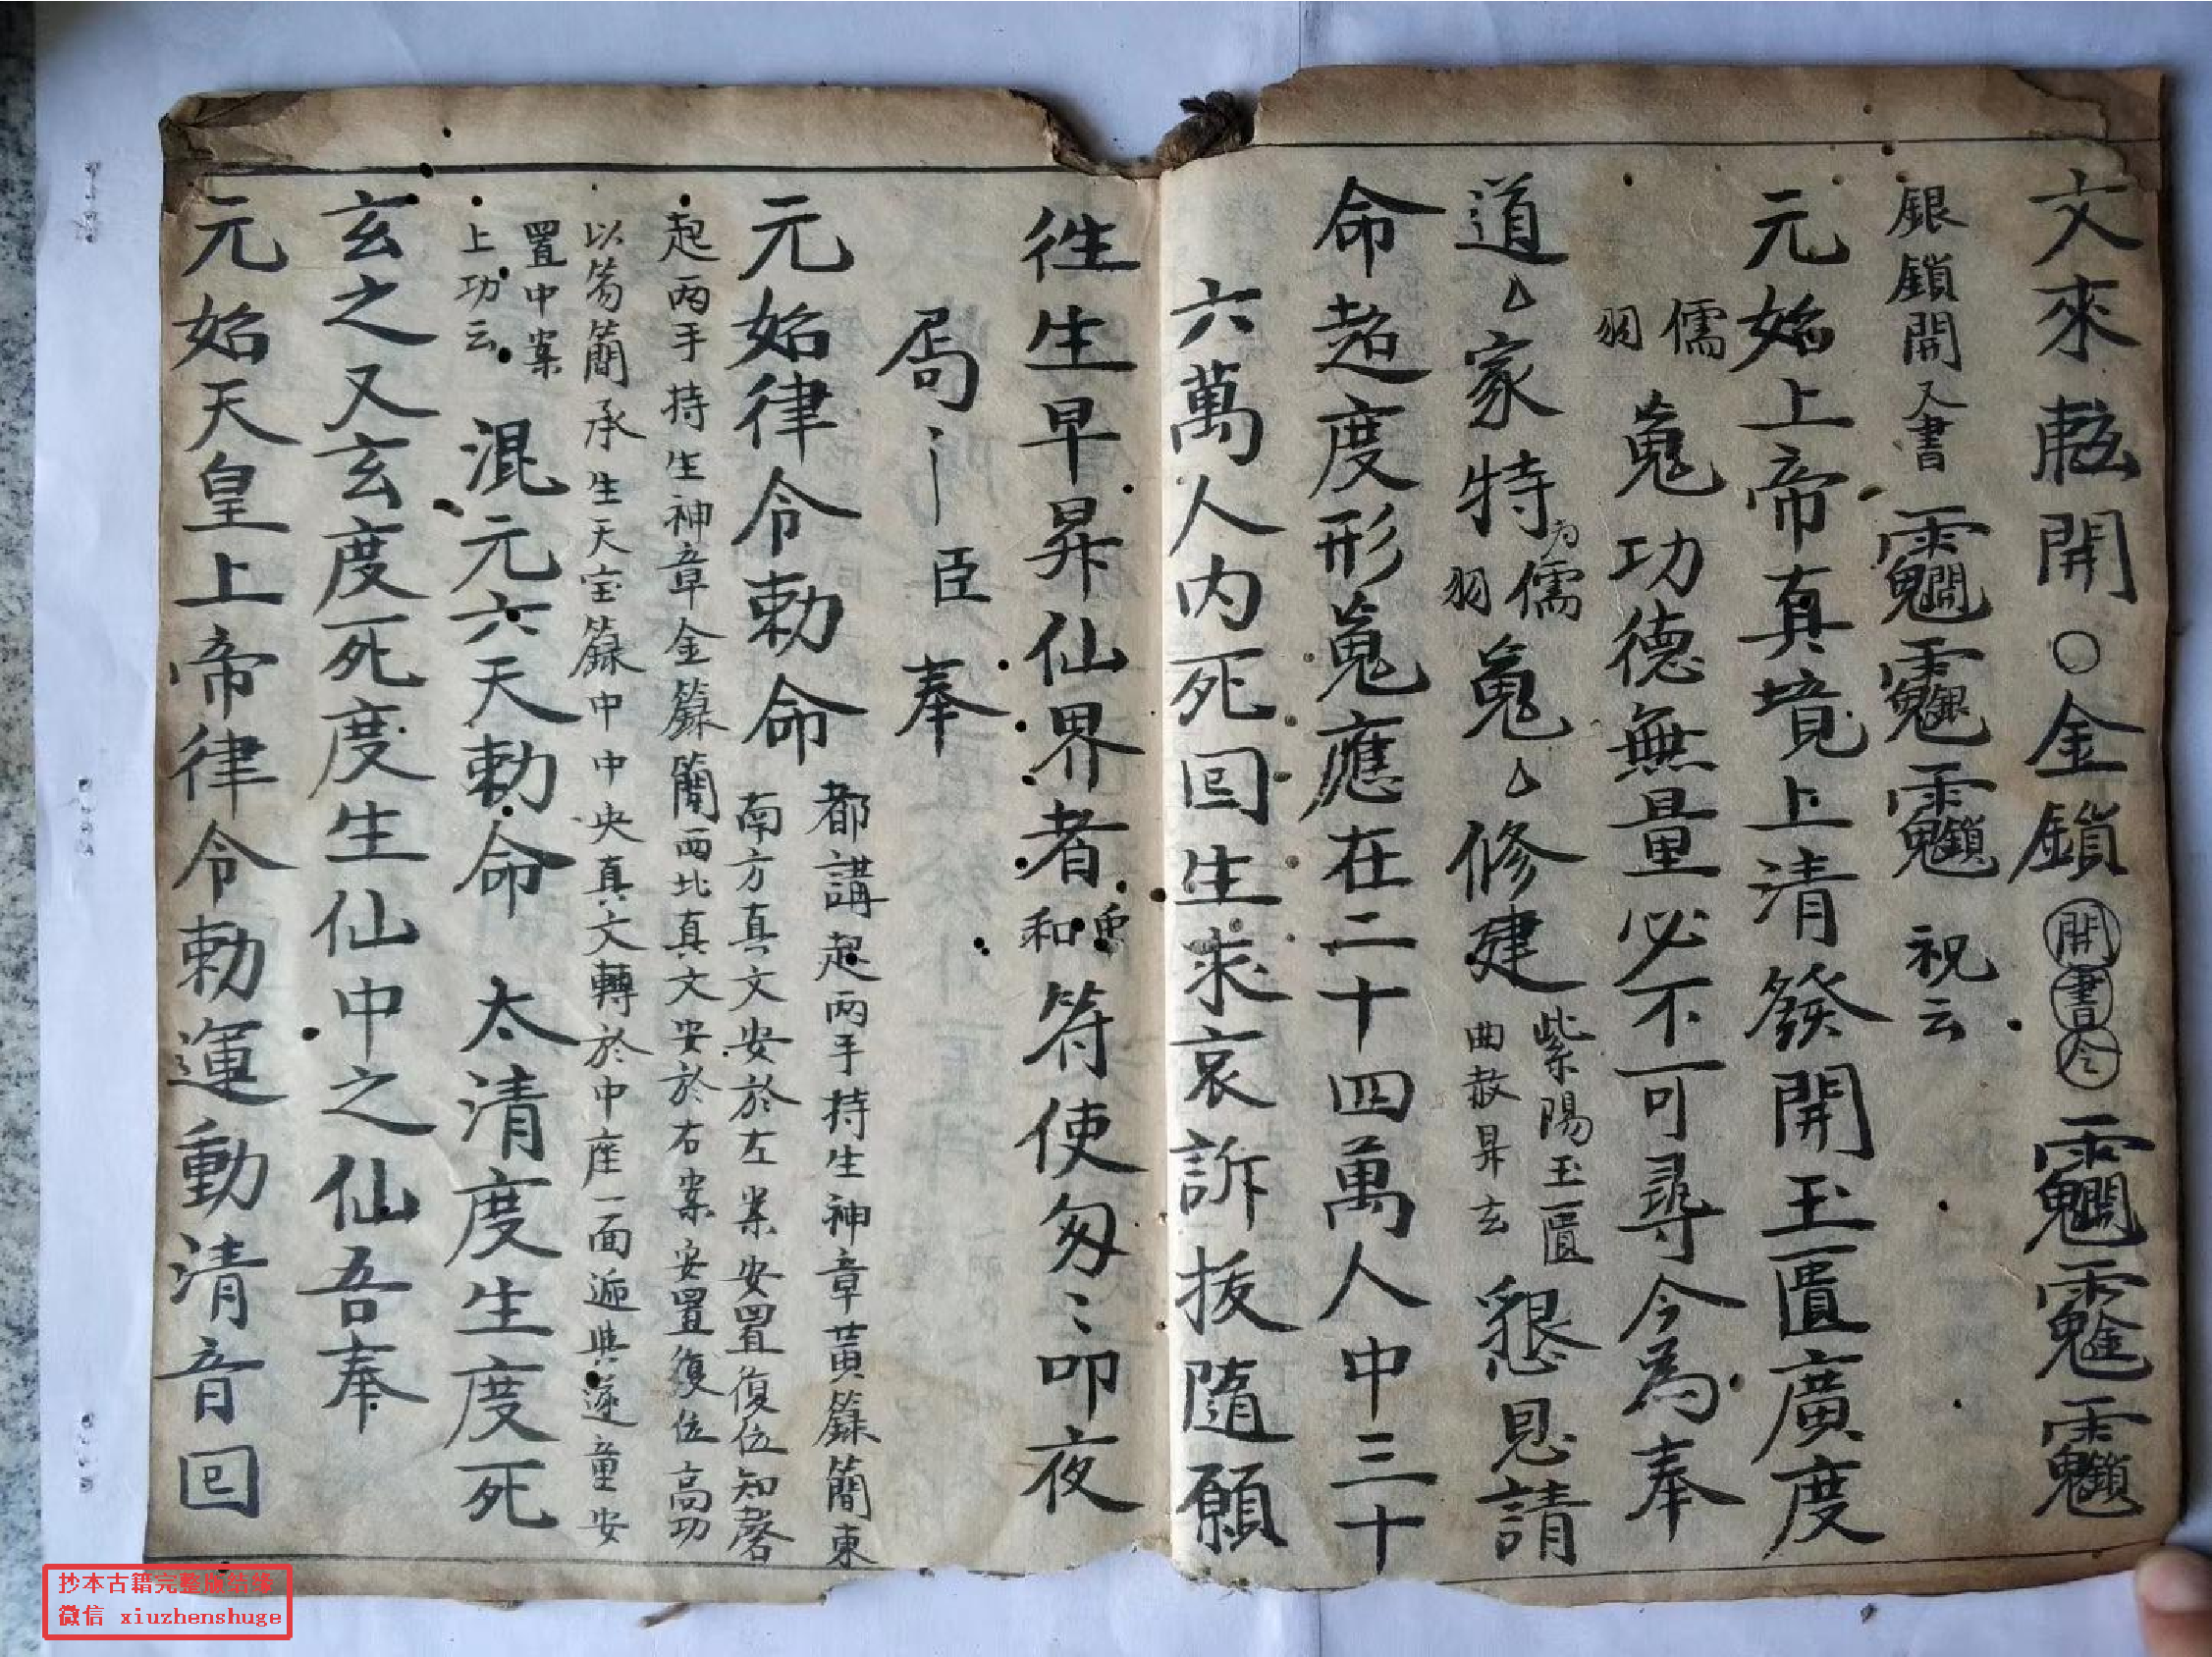 文來転開○金鎖開書令
銀鎖開又書
祝云
元始上帝真境上清發開玉匱廣度
儒
羽
蒐功德無量必不可尋今為奉
道家特
為儒
羽
蒐修建
紫陽玉匱
曲赦昇玄
懇恩請
命超度形蒐應在二十四萬人中三十
六萬人内死回生求哀訴拔隨願
徃生早昇仙界者
和
符使匆〻叩夜
局臣奉
元始律令勅命
都講起兩手持生神章黄籙簡東
南方真文安於左案安置復位知磬
起兩手持生神章金籙簡西北真文安於右案安置復位高功
以笏簡承生天宝籙中中央真文轉於中座一面逓與蓮童安
置中案
上功云
混元六天勅命
太清度生度死
玄之又玄度死度生仙中之仙吾奉
元始天皇上帝律令勅運動清音回
抄本古籍完整版结缘
微信 xiuzhenshuge